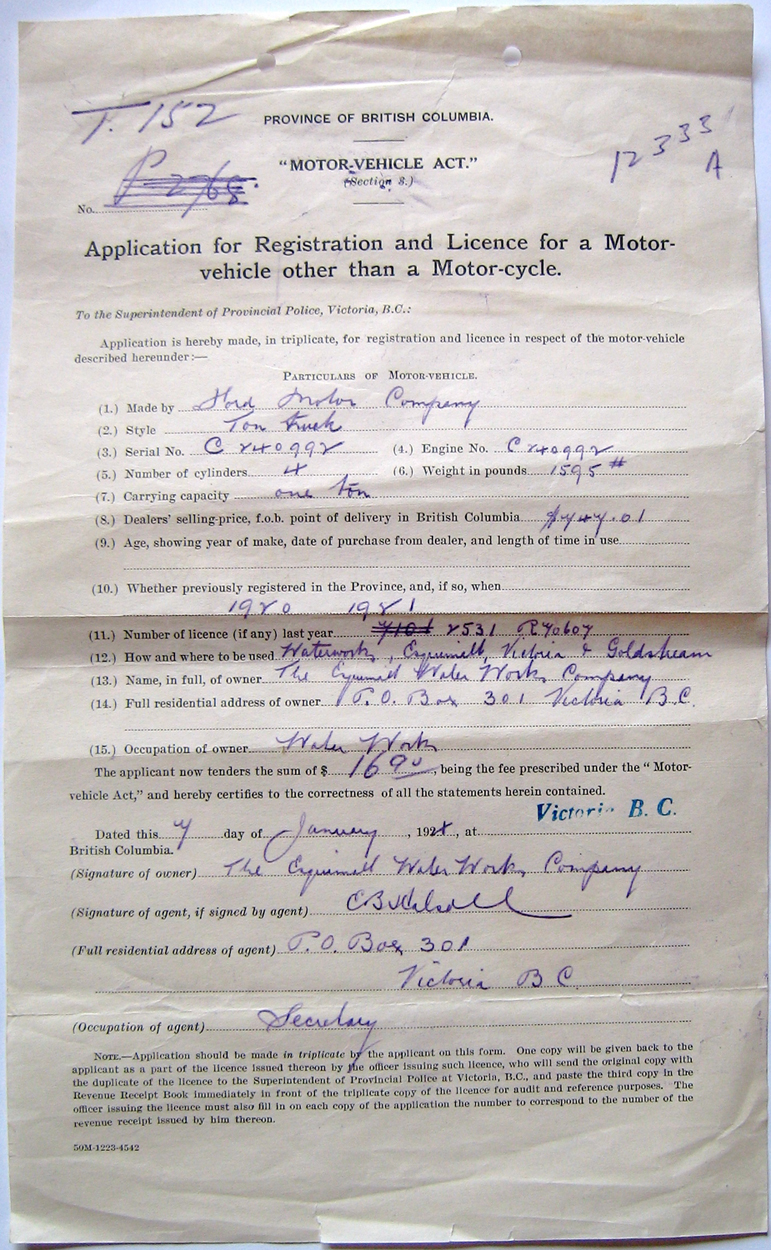 T. 152
PROVINCE OF BRITISH COLUMBIA.
12333
A
"MOTOR-VEHICLE ACT."
(Section 3.)
No. P 2768
Application for Registration and Licence for a Motor-
vehicle other than a Motor-cycle.
To the Superintendent of Provincial Police, Victoria, B.C.:
Application is hereby made, in triplicate, for registration and licence in respect of the motor-vehicle
described hereunder:—
PARTICULARS OF MOTOR-VEHICLE.
(1.) Made by Ford Motor Company
(2.) Style Ton truck
(3.) Serial No. C 240992 (4.) Engine No. C 240992
(5.) Number of cylinders 4 (6.) Weight in pounds 1595 #
(7.) Carrying capacity one ton
(8.) Dealers' selling-price, f.o.b. point of delivery in British Columbia $747.01
(9.) Age, showing year of make, date of purchase from dealer, and length of time in use
(10.) Whether previously registered in the Province, and, if so, when
1920 1921
(11.) Number of licence (if any) last year 7101 2531 R70607
(12.) How and where to be used Waterworks, Esquimalt, Victoria & Goldstream
(13.) Name, in full, of owner The Esquimalt Water Works Company
(14.) Full residential address of owner P.O. Box 301 Victoria B.C.
(15.) Occupation of owner Water Works
The applicant now tenders the sum of $ 16.90, being the fee prescribed under the "Motor-
vehicle Act," and hereby certifies to the correctness of all the statements herein contained.
Victoria B. C.
Dated this 7 day of January, 192, at
British Columbia.
(Signature of owner) The Esquimalt Water Works Company
(Signature of agent, if signed by agent)
(Full residential address of agent) P.O. Box 301
Victoria B C
(Occupation of agent) Secretary
NOTE.—Application should be made in triplicate by the applicant on this form. One copy will be given back to the
applicant as a part of the licence issued thereon by the officer issuing such licence, who will send the original copy with
the duplicate of the licence to the Superintendent of Provincial Police at Victoria, B.C., and paste the third copy in the
Revenue Receipt Book immediately in front of the triplicate copy of the licence for audit and reference purposes. The
officer issuing the licence must also fill in on each copy of the application the number to correspond to the number of the
revenue receipt issued by him thereon.
50M-1223-4542